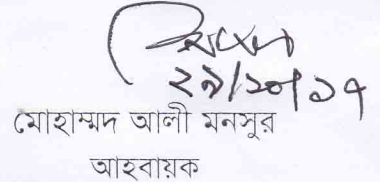 ২৯/১০/১৭
মোহাম্মদ আলী মনসুর
আহবায়ক